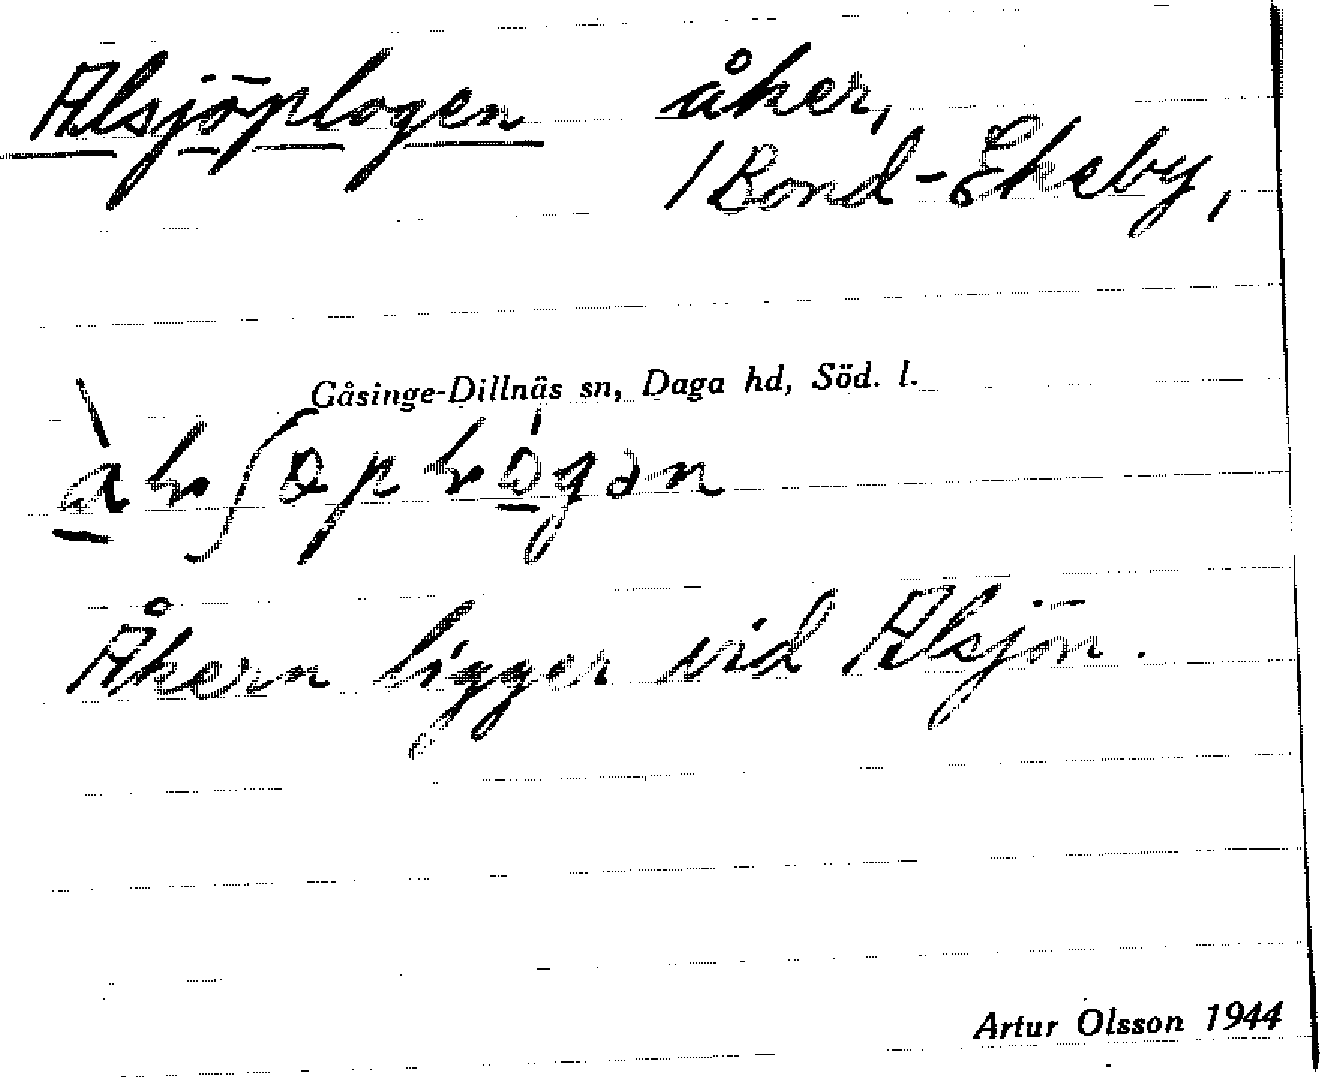 Alsjöplogen åker,
1 Bond-Ekeby,
Gåsinge-Dillnäs sn, Daga hd, Söd. l.
Åkern ligger vid Alsjön.
Artur Olsson 1944